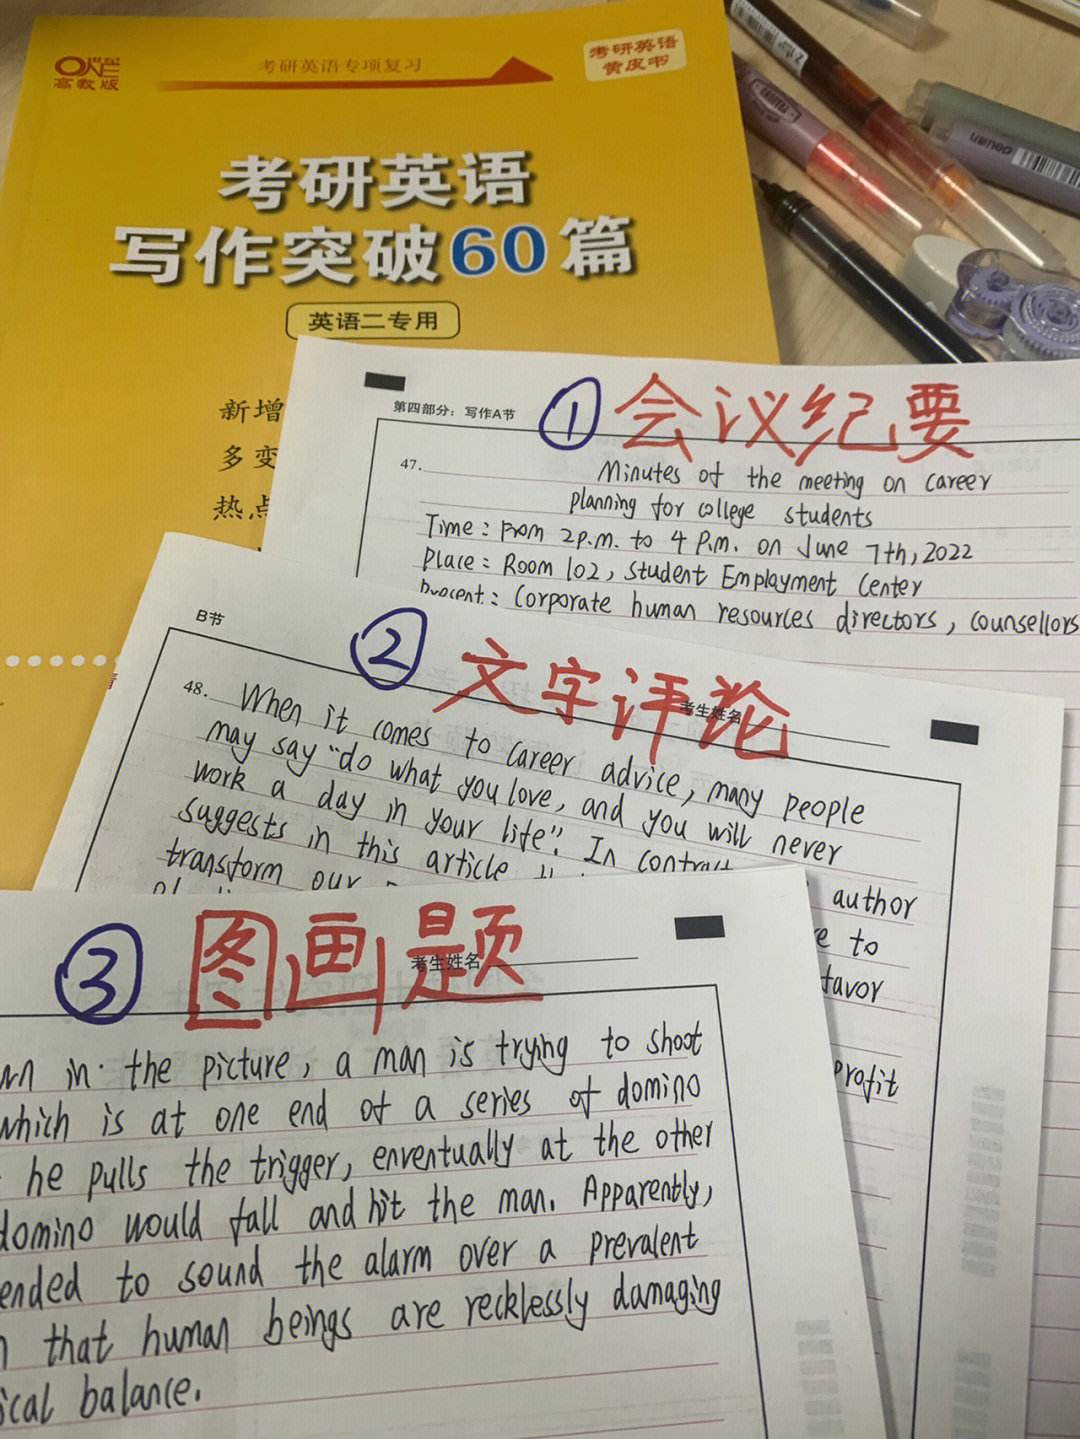 高教版
考研英语专项复习
考研英语
黄皮书
考研英语
写作突破60篇
英语二专用
新增
多变
热点
deli
第四部分：写作A节
① 会议纪要
47.
Minutes of the meeting on career
planning for college students
Time: From 2p.m. to 4 P.m. on June 7th, 2022
Place: Room 102, Student Employment Center
Present: Corporate human resources directors, counsellors
B节
② 文字评论
考生姓名
48. When it comes to career advice, many people
may say "do what you love, and you will never
work a day in your life". In contrast author
suggests in this article
transform our e to
favor
profit
③ 图画题
考生姓名
wn in the picture, a man is trying to shoot
which is at one end of a series of domino
he pulls the trigger, enventually at the other
domino would fall and hit the man. Apparently,
ended to sound the alarm over a prevalent
n that human beings are recklessly damaging
ical balance.